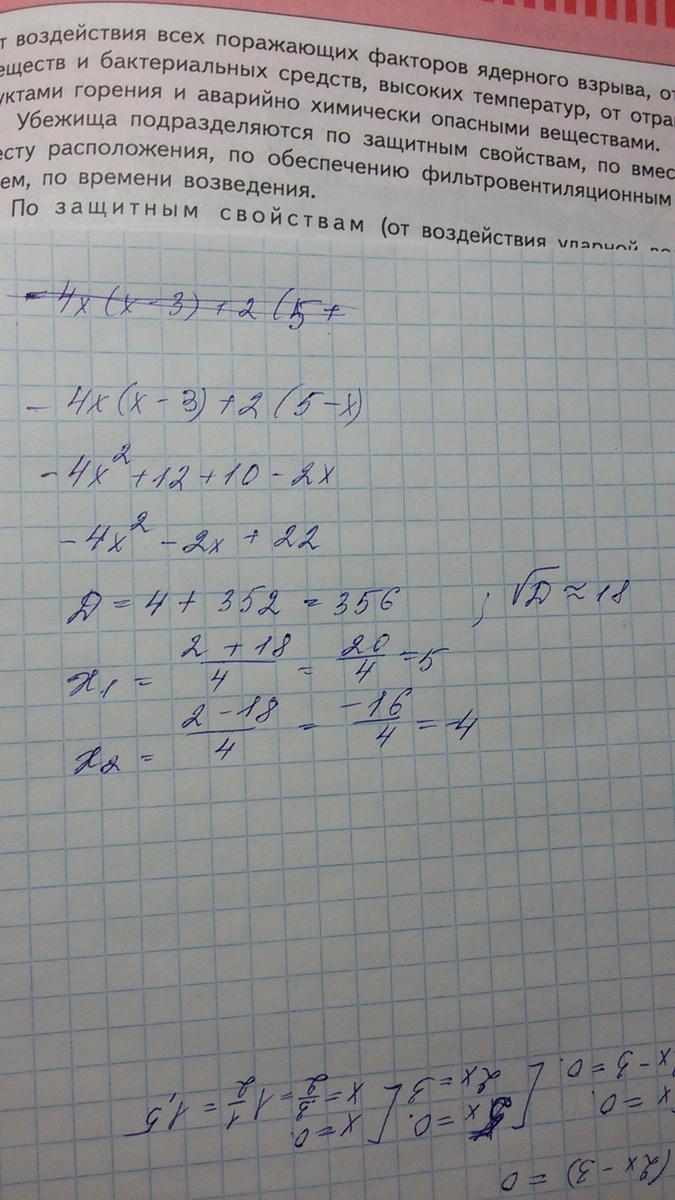 т воздействия всех поражающих факторов ядерного взрыва, от
еществ и бактериальных средств, высоких температур, от отра
уктами горения и аварийно химически опасными веществами.
Убежища подразделяются по защитным свойствам, по вмес
есту расположения, по обеспечению фильтровентиляционным
ем, по времени возведения.
По защитным свойствам (от воздействия ударной
- 4x (x - 3) + 2 (5 +
- 4x (x - 3) + 2 (5 - x)
- 4x² + 12 + 10 - 2x
- 4x² - 2x + 22
D = 4 + 352 = 356 ; √D ≈ 18
x₁ = (2 + 18)/4 = 20/4 = 5
x₂ = (2 - 18)/4 = -16/4 = -4
(2x - 3) = 0
x = 0. [ x = 0. [ x = 0.
2x - 3 = 0. [ 2x = 3 [ x = 3/2 = 1 1/2 = 1,5